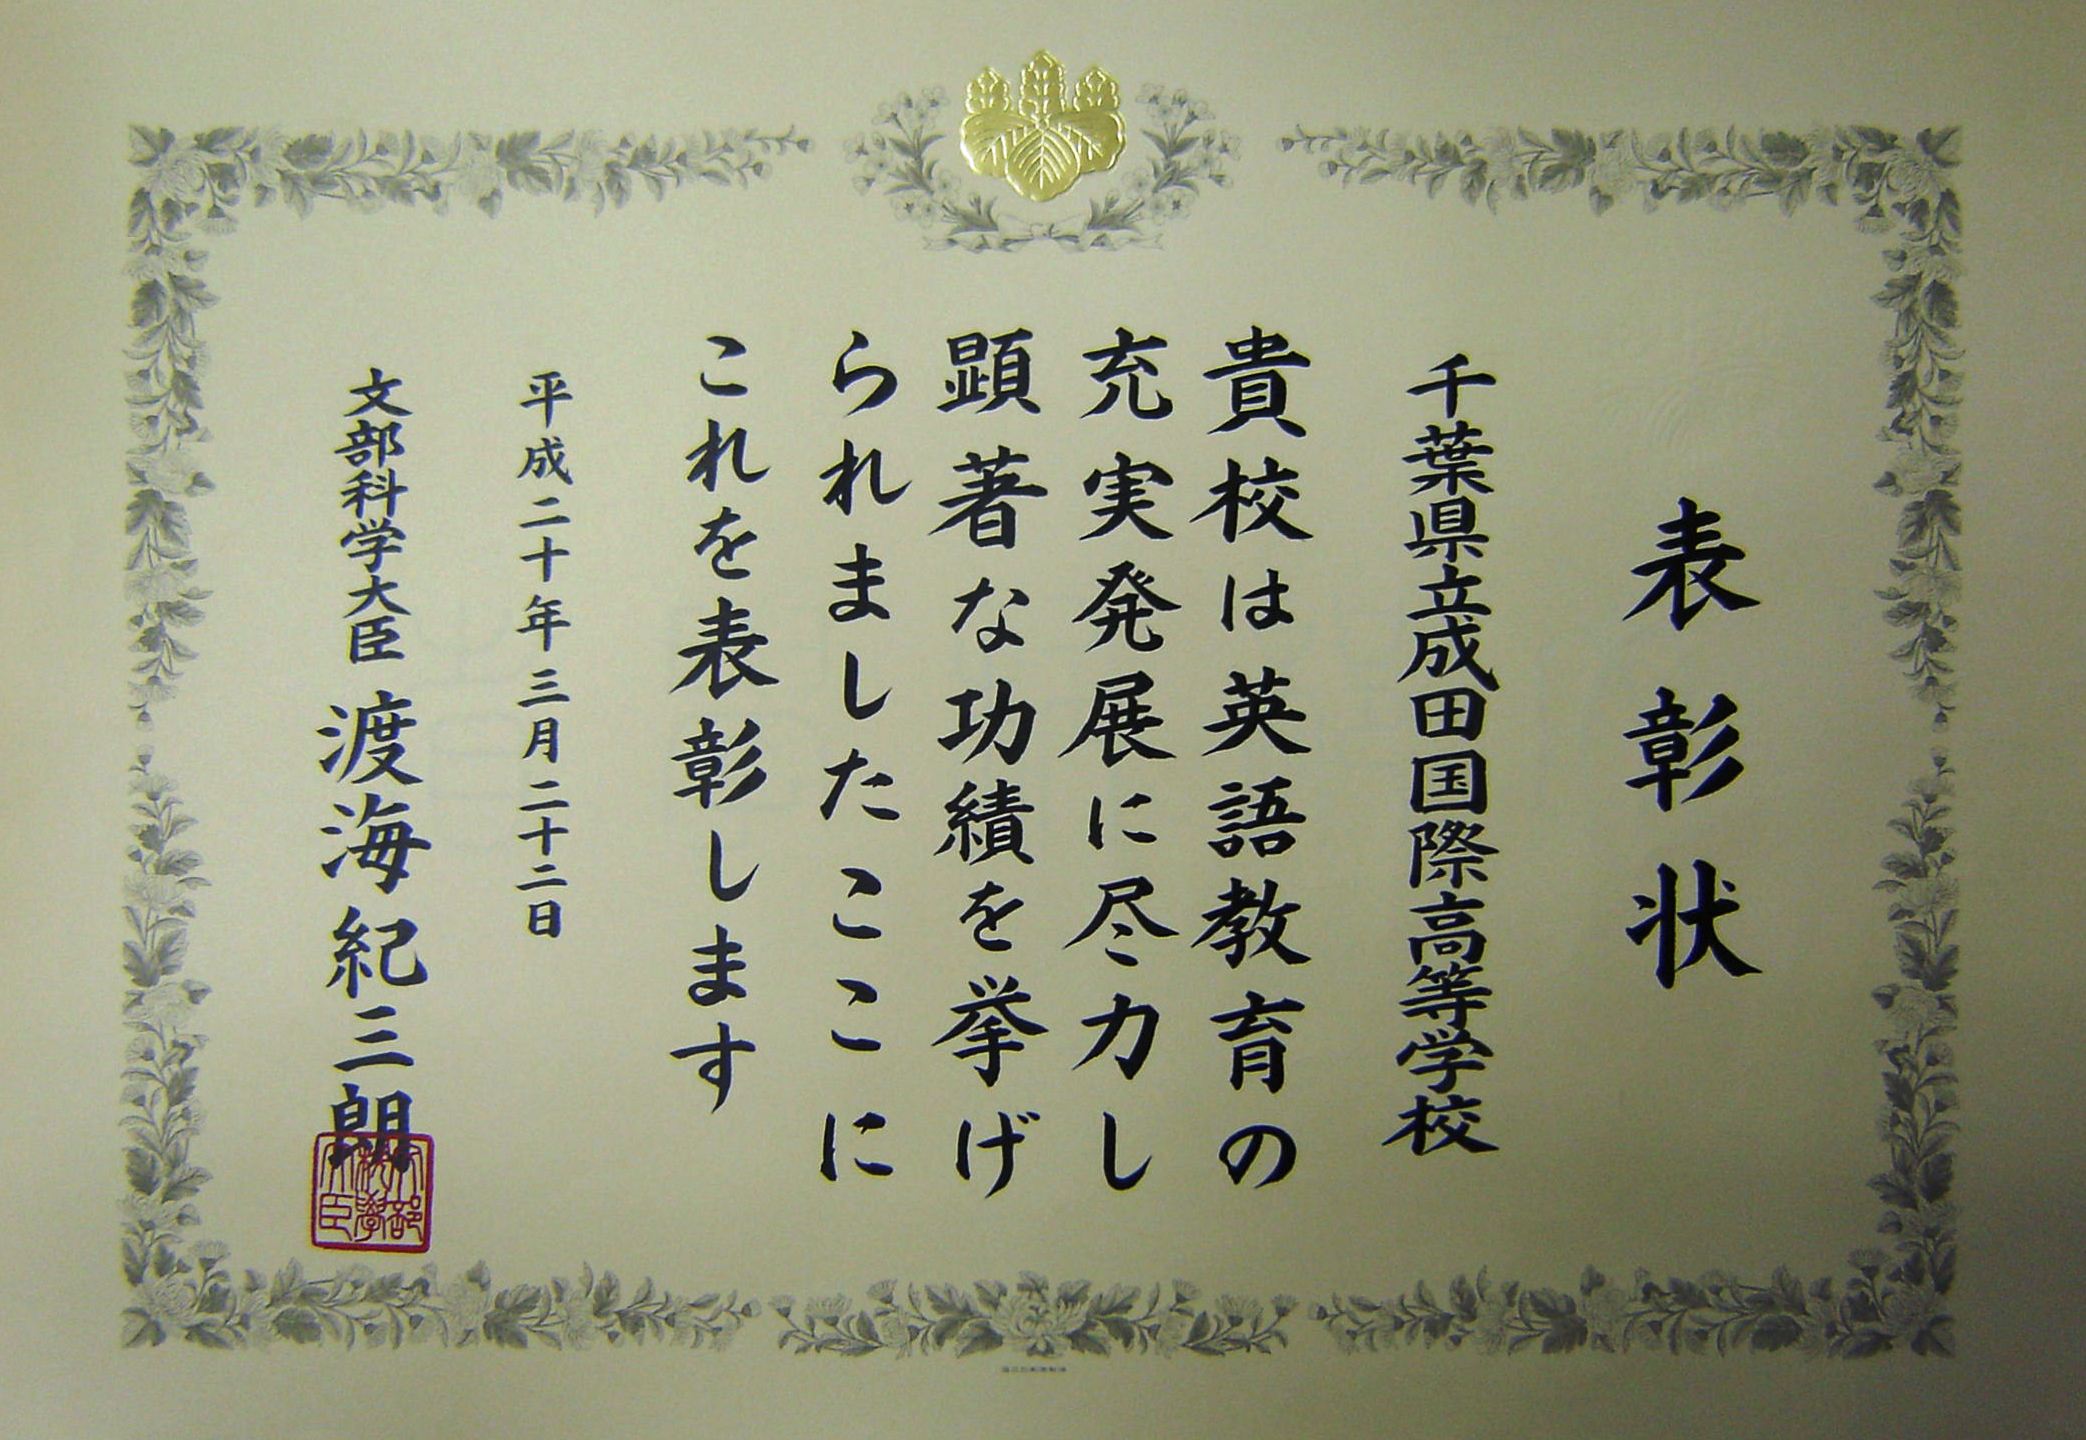 表彰状
千葉県立成田国際高等学校
貴校は英語教育の
充実発展に尽力し
顕著な功績を挙げ
られましたここに
これを表彰します
平成二十年三月二十二日
文部科学大臣 渡海紀三朗
文部科學大臣